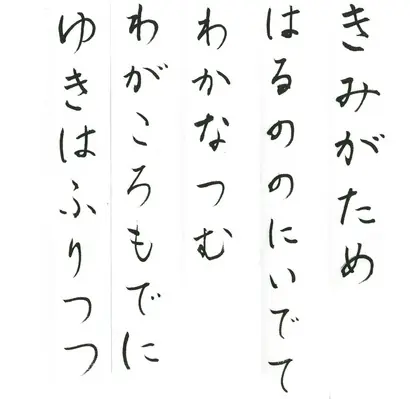 きみがため
はるののにいでて
わかなつむ
わがころもでに
ゆきはふりつつ